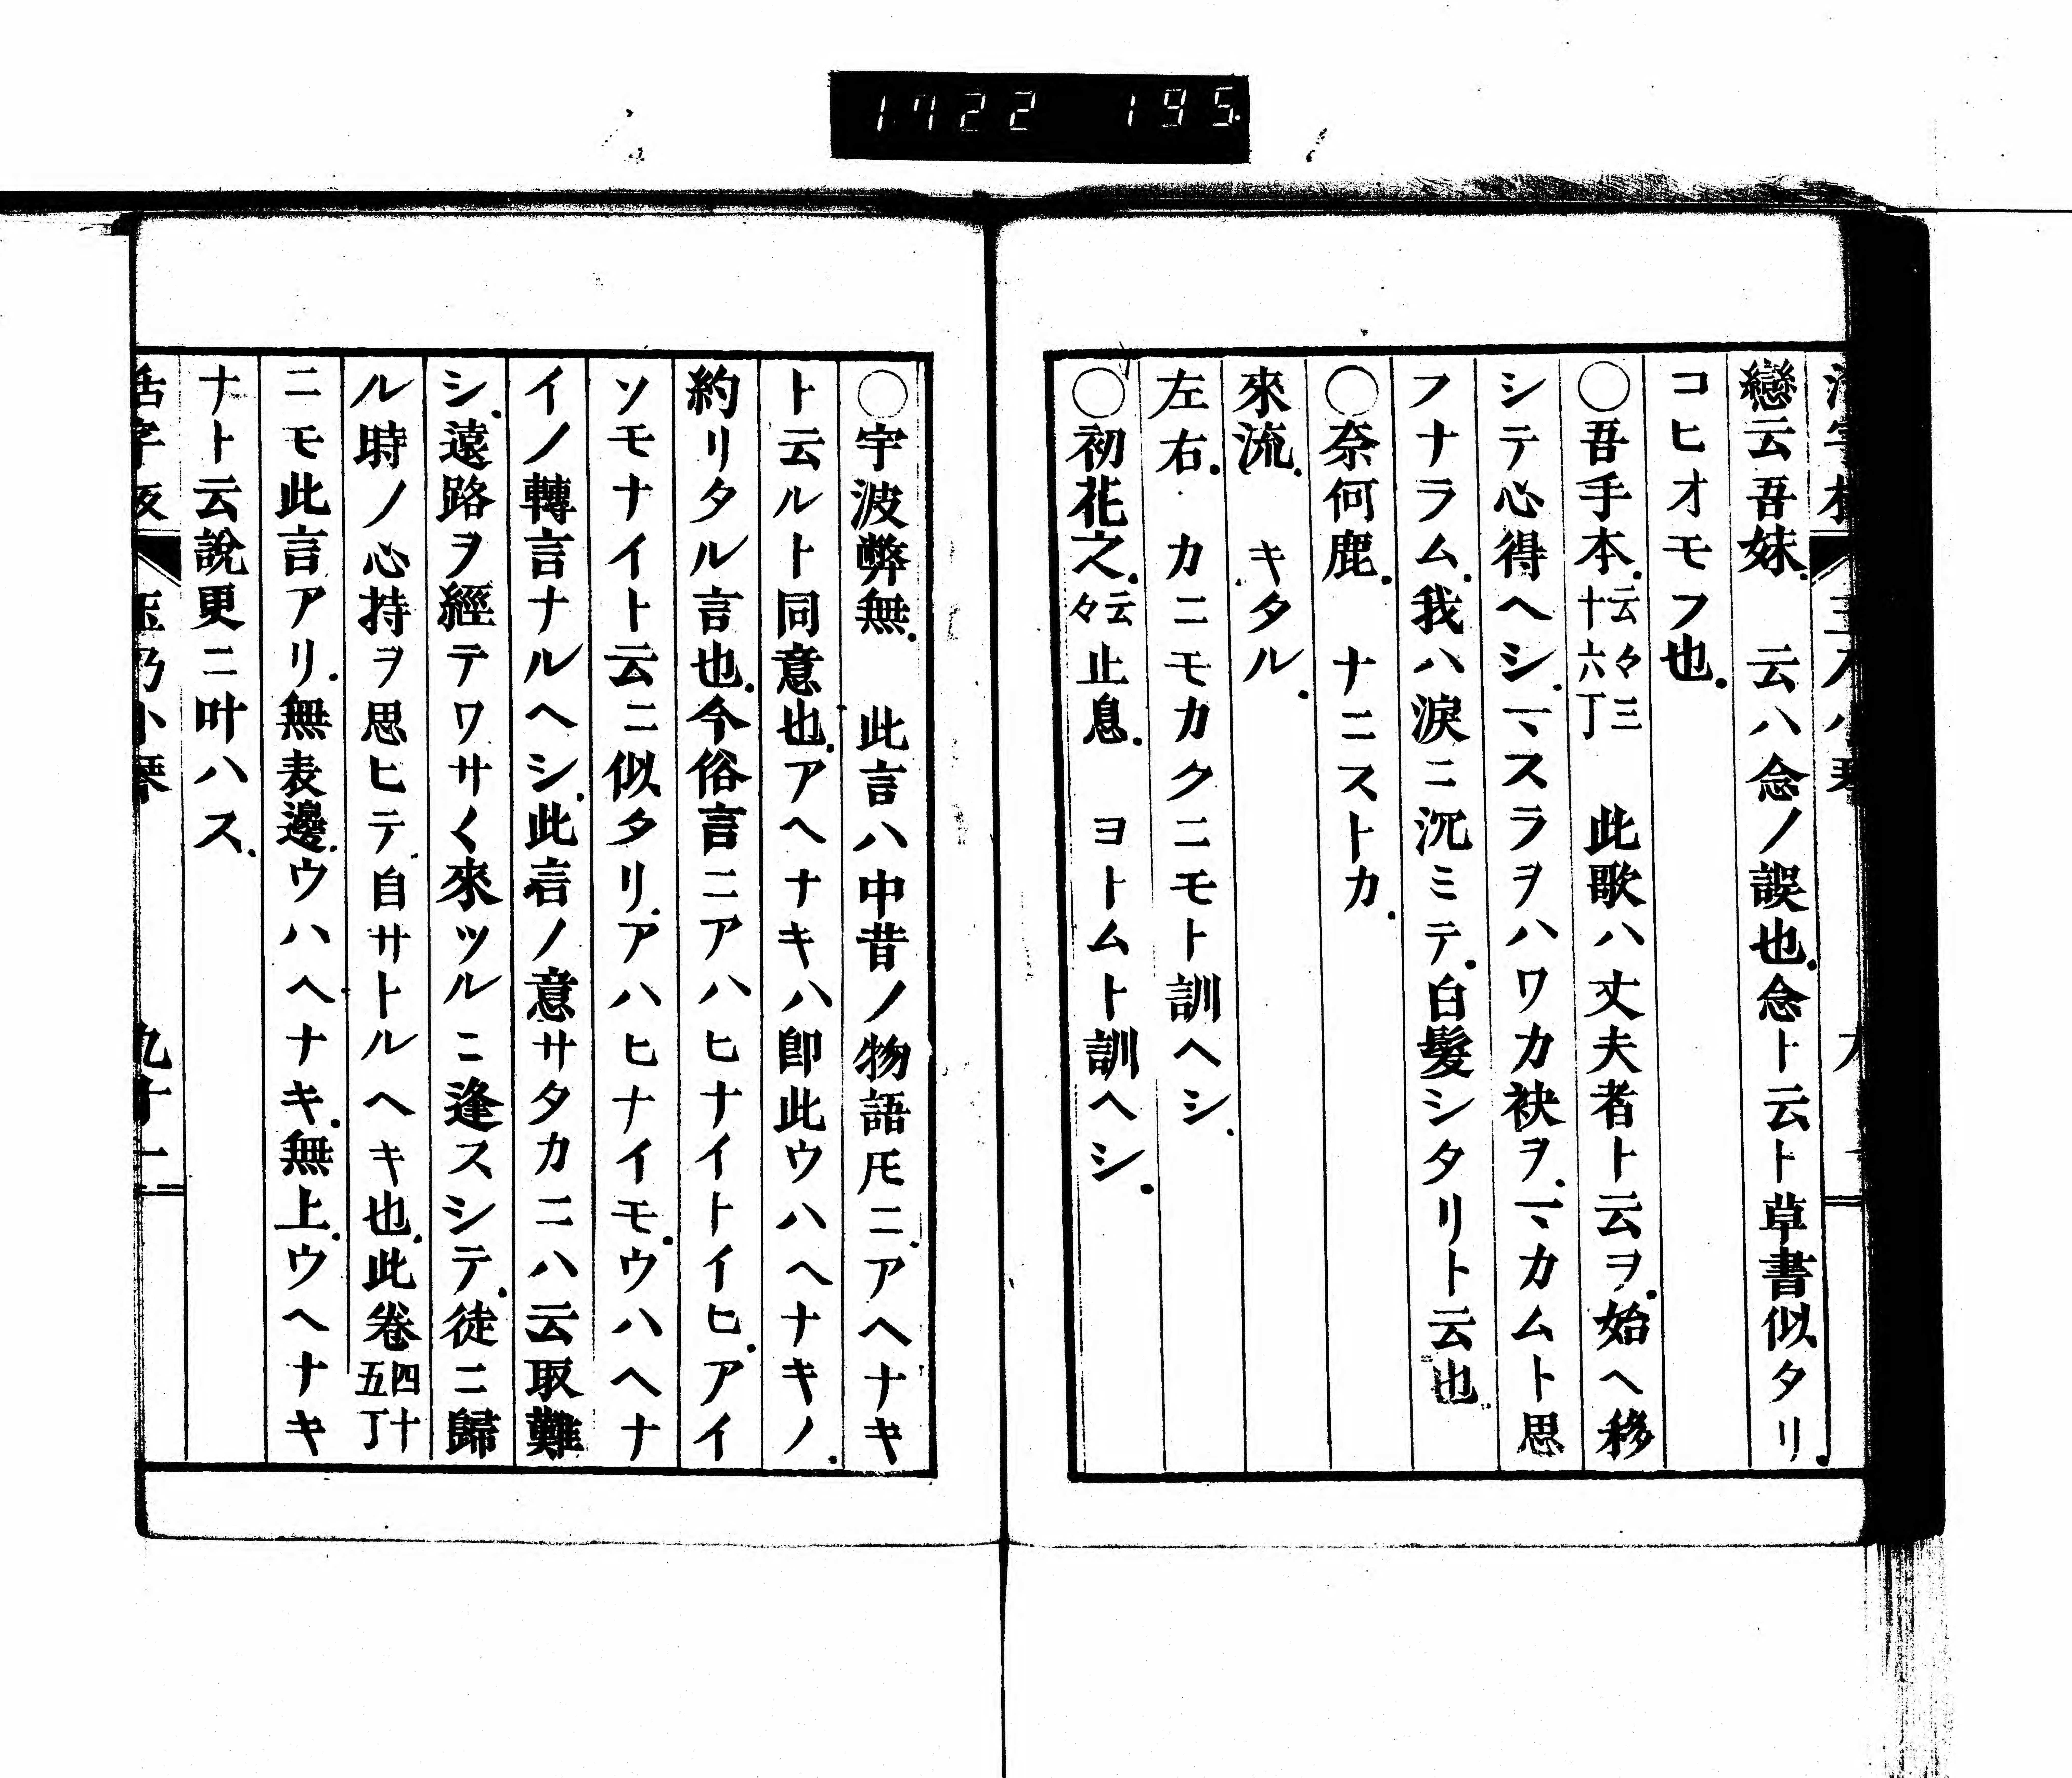 1722 195
戀云吾妹.　云ハ念ノ誤也.念ト云ト草書似タリ.
コヒオモフ也.
○吾手本.云々三十六丁　此歌ハ丈夫者ト云ヲ.始ヘ移
シテ心得ヘシ.一、スラヲハワカ袂ヲ.一、カムト思
フナラム.我ハ淚ニ沉ミテ.白髮シタリト云也.
○奈何鹿.　ナニストカ.
來流.　キタル.
左右.　カニモカクニモト訓ヘシ.
○初花之.云々止息.　ヨトムト訓ヘシ.
○宇波弊無.　此言ハ中昔ノ物語𪜈ニ.アヘナキ
ト云ルト同意也.アヘナキハ卽此ウハヘナキノ.
約リタル言也.今俗言ニアハヒナイトイヒ.アイ
ソモナイト云ニ似タリ.アハヒナイモ.ウハヘナ
イノ轉言ナルヘシ.此言ノ意サタカニハ云取難
シ.遠路ヲ經テワサ〱來ツルニ逢スシテ.徒ニ歸
ル時ノ心持ヲ思ヒテ.自サトルヘキ也.此卷四十五丁
ニモ此言アリ.無表邊.ウハヘナキ.無上.ウヘナキ
ナト云說更ニ叶ハス.
活字板　玉乃小琴　九十一